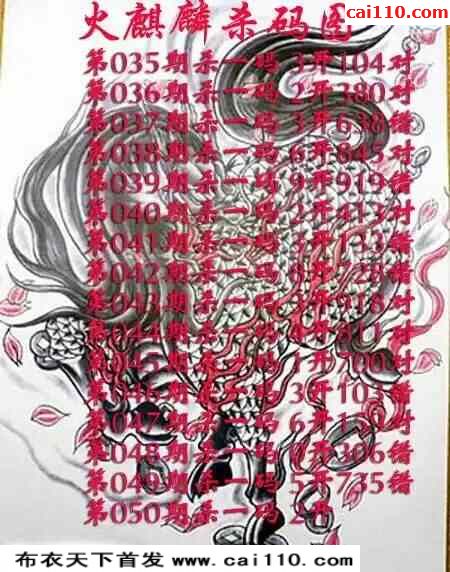 www.
cai110.com
火麒麟杀码图
第035期杀一码 3开104对
第036期杀一码 2开380对
第037期杀一码 3开638错
第038期杀一码 6开845对
第039期杀一码 9开919错
第040期杀一码 2开413对
第041期杀一码 开133错
第042期杀一码 8开728错
第043期杀一码 开918对
第044期杀一码 开911对
第045期杀一码 1开700对
第046期杀一码 3开103错
第047期杀一码 6开1 对
第048期杀一码 开306错
第049期杀一码 5开735错
第050期杀一码 2开
布衣天下首发 www.cai110.com